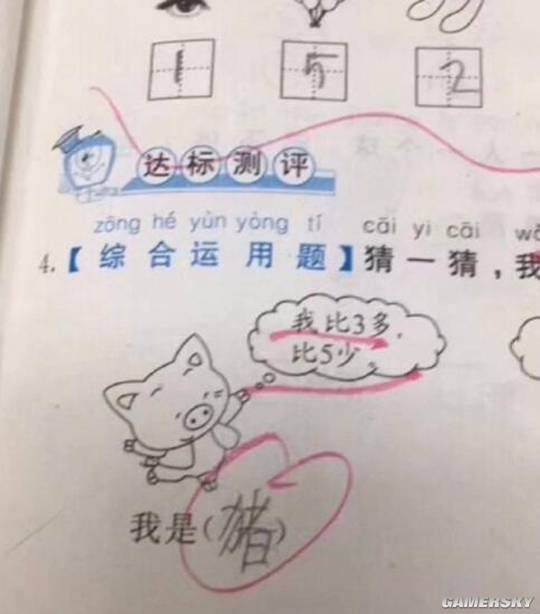 1 5 2
达标测评
zōng hé yùn yòng tí cāi yi cāi
4.【综合运用题】猜一猜，我
我比3多，
比5少。
我是(猪)
GAMERSKY